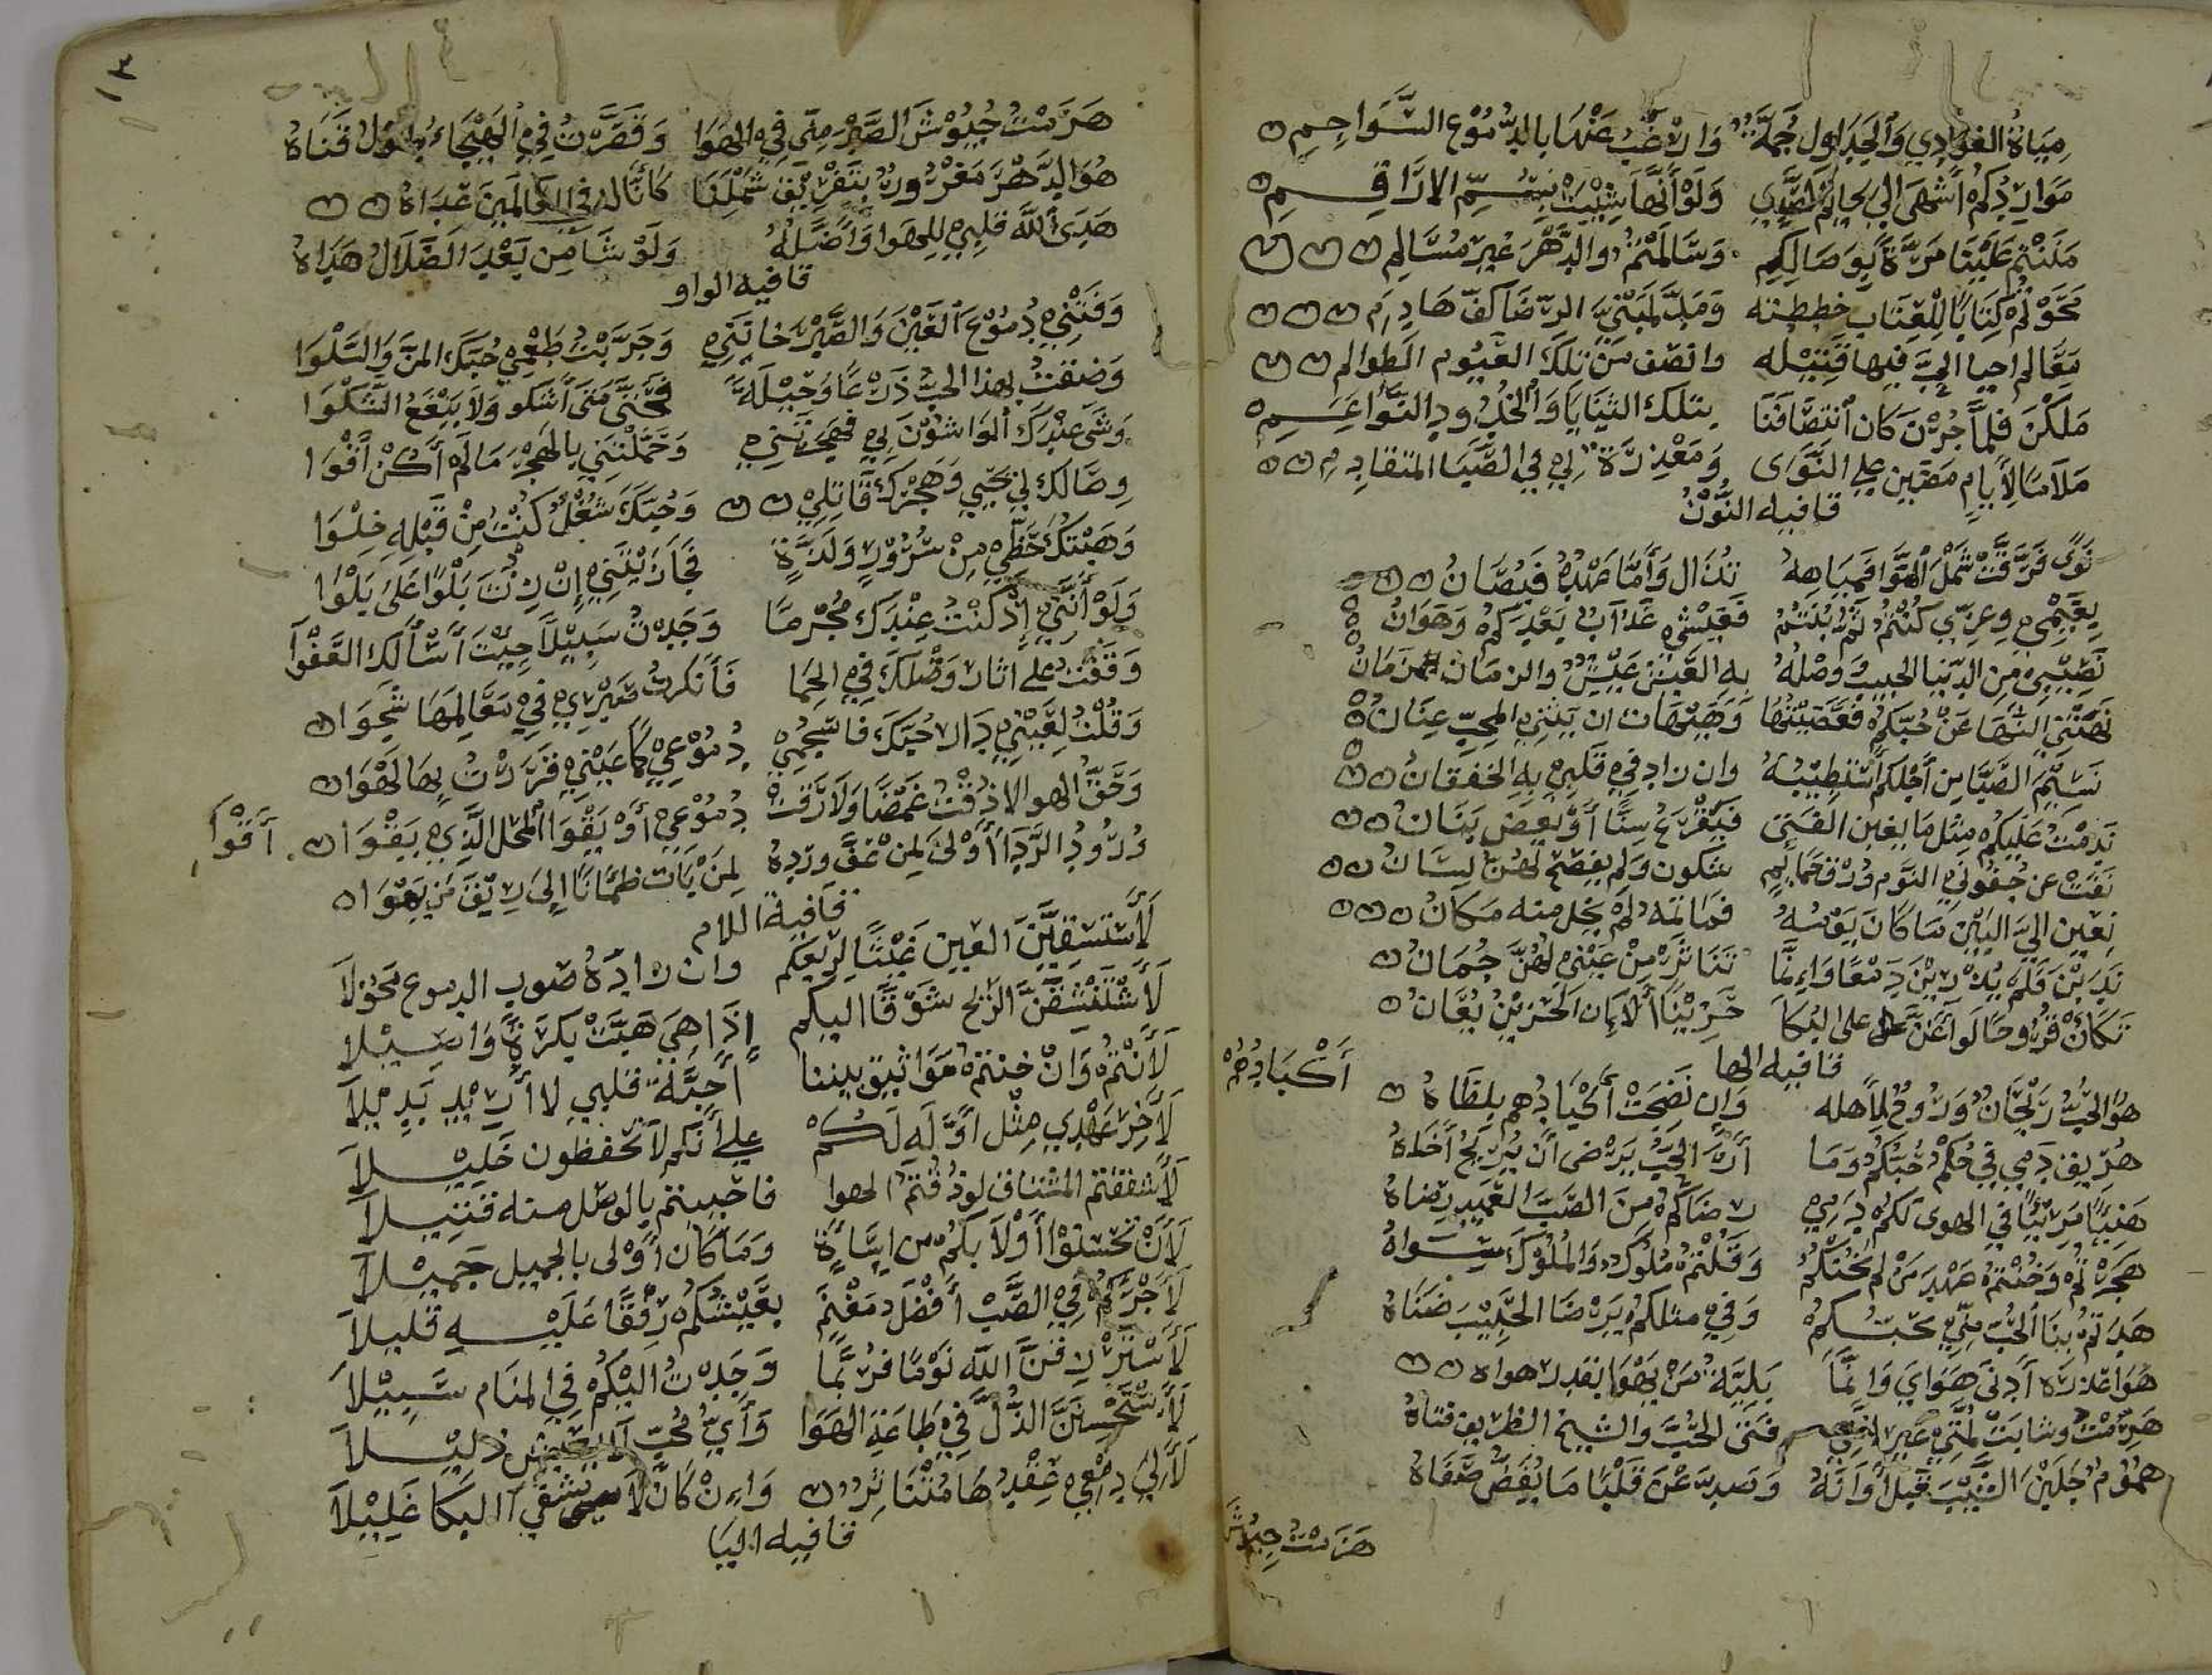 مِيَاهُ الغوادِي وَالجَدَاوِل جُمْلَةً وَارْغَبُ عَنْهَا بالدُّمُوْع السَّوَاجِمِ
مَوَارِدُكُم أَشْهَى الي لَوْ أَنَّهَا شِيْبَتْ بِسُمِّ الارَاقِمِ
مَنَنْتُم عَلَيْنَا مَرَّةً بِوِصَالِكُم وَسَالَمْتُمُ والدَّهْرُ غَيْرُ مُسَالِم
مَحَوْتُمْ كِتَابًا لِلْعِتَابِ خططته الرِّضَا كَفّ هَادِمِ
مَعَالم احيا الحبّ فيها قَتِيْلَه وانصف مِنْ تلكَ العيُوم
مَلَكْنَ فَلَمَّا جُرْنَ كَانَ انتصَافَنَا بتلك الثَنَايَا وَالخُدُودِ النَّوَاعِمِ
مَلَامًا لِأَيامٍ علي النَّوَى وَمَعْذِرَةً لِي فِي الصِّبَا المتقادِمِ
قافيه النُّوْن
نَوًى فَرَّقَتْ شَمْلَ الهَوَا تُذَال وَأَمَّا عَهْدُهُ فيُصَانُ
نَعِيْمِي وعِزّي كُنْتُمُ ثُمَّ بُنْتُمُ فَعَيْشِي عَذَابٌ بَعْدَكُم وَهَوَانُ
نَصِيْبِي مِن الدّنيا الحبيبُ وَصْلُهُ بِهِ العَيْشُ عَيْشٌ والزمَان زَمَانُ
نَهَتْنِي النُّهَا عَنْ حُبّكُمْ فَعَصَيْتُهَا وَهَيْهَات ان يَثْنِي المحبَّ عِنَانُ
نَسِيْمَ الصَّبَا مِن أَجْلِكم أَسْتَطِيْبُهُ وان زاد فِي قلبِي بِهِ الخفقانُ
نَدِمْتُ عَلَيْكُم مِثْل مَا يغبن الفَتَى فَيَقْرَعُ سِنًّا أَوْ يَعَضّ بَنَانُ
نَفَتْ عن جُفُونِي النَّوم وُرْقُ حَمَائِمٍ شكون ولم يفصح لَهُنَّ لِسَانُ
نعين اليَّ البَيْن مَا كَانَ بَعْضُهُ فَمَا ثَمَّ لم يخل منه مَكَانُ
نَدَبْنَ فَلَم يُذْرِيْنَ دَمْعًا وَإِنَّمَا تَنَاثَرَ مِنْ عَيْنِي لَهُنَّ جُمَانُ
على البُكَا حَزِيْنًا أَلَا إِنَ الحَزِيْنَ يُعَانُ
قافيه الها
هوَ الحُبُّ رَيْحَانٌ وَرُوْحٌ لِأَهله وَإِن نَضِجَتْ أَكْبَادُهم بِلِظَاهُ
أَكْبَادُهُمْ
هُرِيقَ دَمِي فِي حُكْمِ حُبّكُمُ وَمَا أَرَى الحُبَّ يَرْضى أَنْ يُرِيْحَ أَخَاهُ
هَنِيًا مَرِيْئًا فِي الهوى لَكُم دَمِي رضَاكُم مِنَ الصَّبِّ العَمِيدِ رِضَاهُ
هَجَرْتُم وَخُنْتُم عَهْدَ مَن لم يَخُنْكُمُ وَقُلْتُم مُلُوكٌ وَالمُلُوْكُ سِوَاهُ
هَدَتْمُ بِنَا الحُبَّ وَفِي مثلكم يَرْضَا الحَبِيْبَ ضَنَاهُ
هوَا عذرة أَدْنَى هَوَايَ وَإِنَّمَا بَلِيَّةُ مَنْ يَهْوَا بقدر هواه
هَرِمْتُ وشابتْ لِمَّتِي غير فتى الحُبَّ والشيخُ الظريف فتاهُ
هُمُوْمٌ جَلَبْنَ الشَّيْبَ قَبْلَ أَوَانَهُ وَصدّ عَنْ قَلْبٍ مَا يُفَضُّ صَفَاهُ
هَزَمْتُ جيُوْشَ
١٣
هَزَمْتُ جُيُوْشَ الصَّبْر مِنّي فِي الهَوَا وَقَصَّرْتُ فِي الهَيْجَاءِ طُوْلُ قَنَاهُ
هُوَ الدَّهْرُ مَغْرُورٌ بِتَفْرِيْقِ شَمْلِنَا كأَنَّا له فِي العَالَمِيْنَ عَدَاهُ
هَدَى اللَّه قلبِي لِلهَوَا وَأَضَلَّهُ وَلَوْ شَا مِن بَعْدِ الضَّلَالُ هَدَاهُ
قافيه الواو
وَفَتْنِي دُمُوْعُ العَيْن وَالصَّبْرُ خانَنِي وَجَرَّبْتُ طَعْمَي حُبّكَ المنَّ وَالسَّلْوَا
وَضِقْتُ بهذا الحبّ ذَرْعًا وَحِيْلَةً فَحَتَّى مَتَى أَشْكو ولَا يَنْفَعُ الشَّكْوَا
وَشَى عِنْدَكَ الوَاشُوْنَ بِي فهجرتَنِي وَحَمَّلْتَنِي بالهَجْرِ مَا لَم أَكُنْ أَقْوَا
وِصَالكَ لِي مُحْيِي وَهَجْرُكَ قَاتِلِي وَحُبّكَ شُغْلٌ كُنْتُ مِنْ قَبْلِهِ خِلْوَا
وَهَبْتُكَ حَظِّي مِنْ سُرُوْرٍ وَلَذَّةٍ فَجَازَيْتَنِي إِنْ زِدْتَ بَلْوًا عَلَى بَلْوَا
وَلَوْ أَنَّنِي إِذْ كُنْتُ عِنْدَكَ مُجْرمًا وَجَدْتُ سَبِيْلًا جِيْتَ أَسْأَلكَ العَفْوَا
وَقَفْتُ علي اثار وَصْلكَ فِي الحِمَا فَأَنكرتُ صَبْرِي فِي مَعَالِمَهَا شَجْوَا
وَقُلْتُ لِعَيْنِي دَار حُبّكَ فاسْجُمِي دُمُوْعِي فَزَرْتُ بِهَا لَهْوَا
وَحَقِّ الهوا لا ذُقْتُ غَمْضًا وَلَا رَقَتْ دُمُوْعِي أَوْ يَقْوَا المحل الَّذِي يَقْوَا
أَقْوَا
وُرُودُ الرَّدَا أَوْلَى لِمَنْ عَقَّ وِرْدهُ لِمَنْ بَات ظمْآنًا إِلَى رِيْقِ مَن يَهْوَا
قافية اللام
لَأَسْتَسْقِيَنَّ العَين غَيْثًا لِرَبْعِكم وان زادَهُ صَوب الدموع مَحُوْلَا
لَأَسْتَنْشِقَنَّ الرّيْح شَوْقًا اليكُم إِذَا هِيَ هَبَّتْ بكرَةً وَاصِيْلَا
لَأَنْتُم وَإِنْ خنتم مَوَاثيق بيننا أَحِبَّةُ قلبي لا أُرِيْد بَدِيْلَا
لَأَخِر عَهْدِي مِثْل أَوَّلَهِ لَكُم علي أَنكم لَا تحفظون خَلِيْلَا
لَأَشفقتم المشتاق لو ذُقْتُم الهوا فاحييتم بِالوصل منه قتِيلَا
لَأَنْ تُحْسِنُوْا أَوْلَا بكُم من إِسَاءةٍ وَمَا كَان أَوْلى بالجميل جَمِيْلَا
لَأَجْرُكُم فِي الصَّبْ أَفْضَلُ مَغْنَم بِعَيْشكُم رِفْقًا عَلَيْهِ قَلِيلَا
لَأَسْتَرْزِقَنَّ اللَّه نَوْمًا فَرُبَّمَا وَجَدْتُ اليْكُم فِي المنَام سَبِيْلَا
لَأَسْتَحْسِنَنَّ الذُّلَّ فِي طَاعَةِ الهَوَا وَأَيُّ مُحِبّ لَا يعيش ذليْلَا
لَأَلِي دمْعِي عِقْدُهَا مُتَنَاثِرٌ وَإِنْ كَانَ لَا يشفي البكَا غَلِيْلَا
قافيه اليا